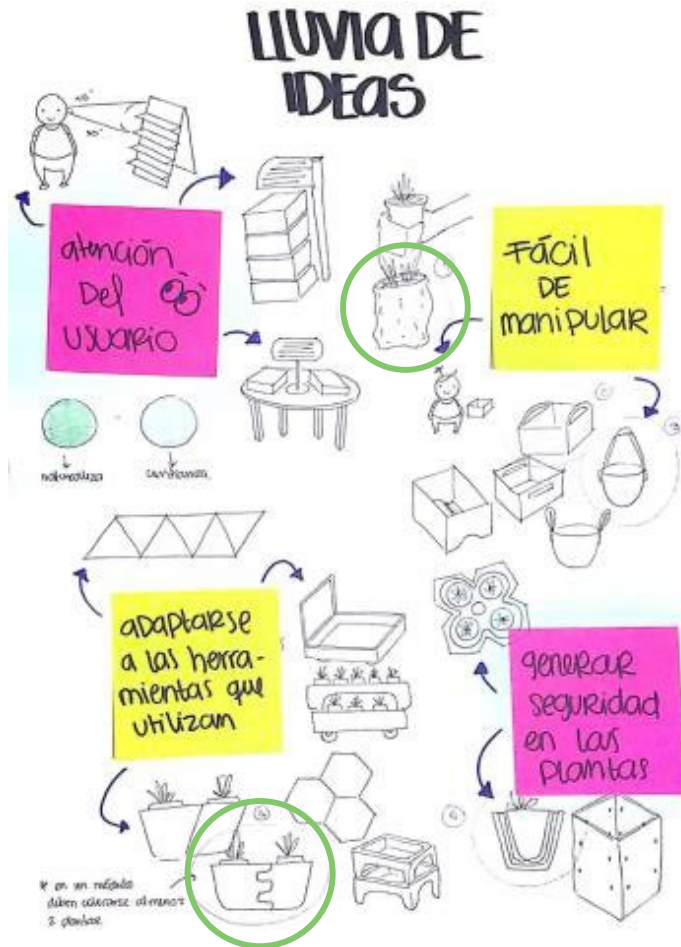 LLUVIA DE
IDEAS
atención
Del
USUARIO
Fácil
DE
manipular
naturaleza
confianza
adaptarse
a las herra-
mientas que
utilizan
generar
seguridad
en las
plantas
* en un módulo
deben colocarse al menos
2 plantas